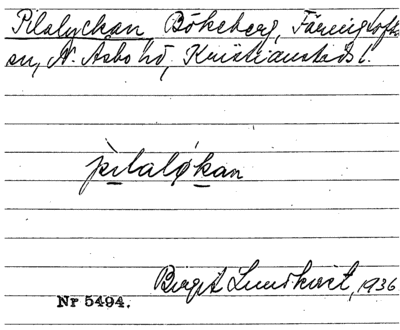 Pilalyckan, Bökeberg, Färinglofta
sn, N. Åsbo hd, Kristianstads l.
pìlaløkan
Birgit Lundkvist, 1936
Nr 5494.